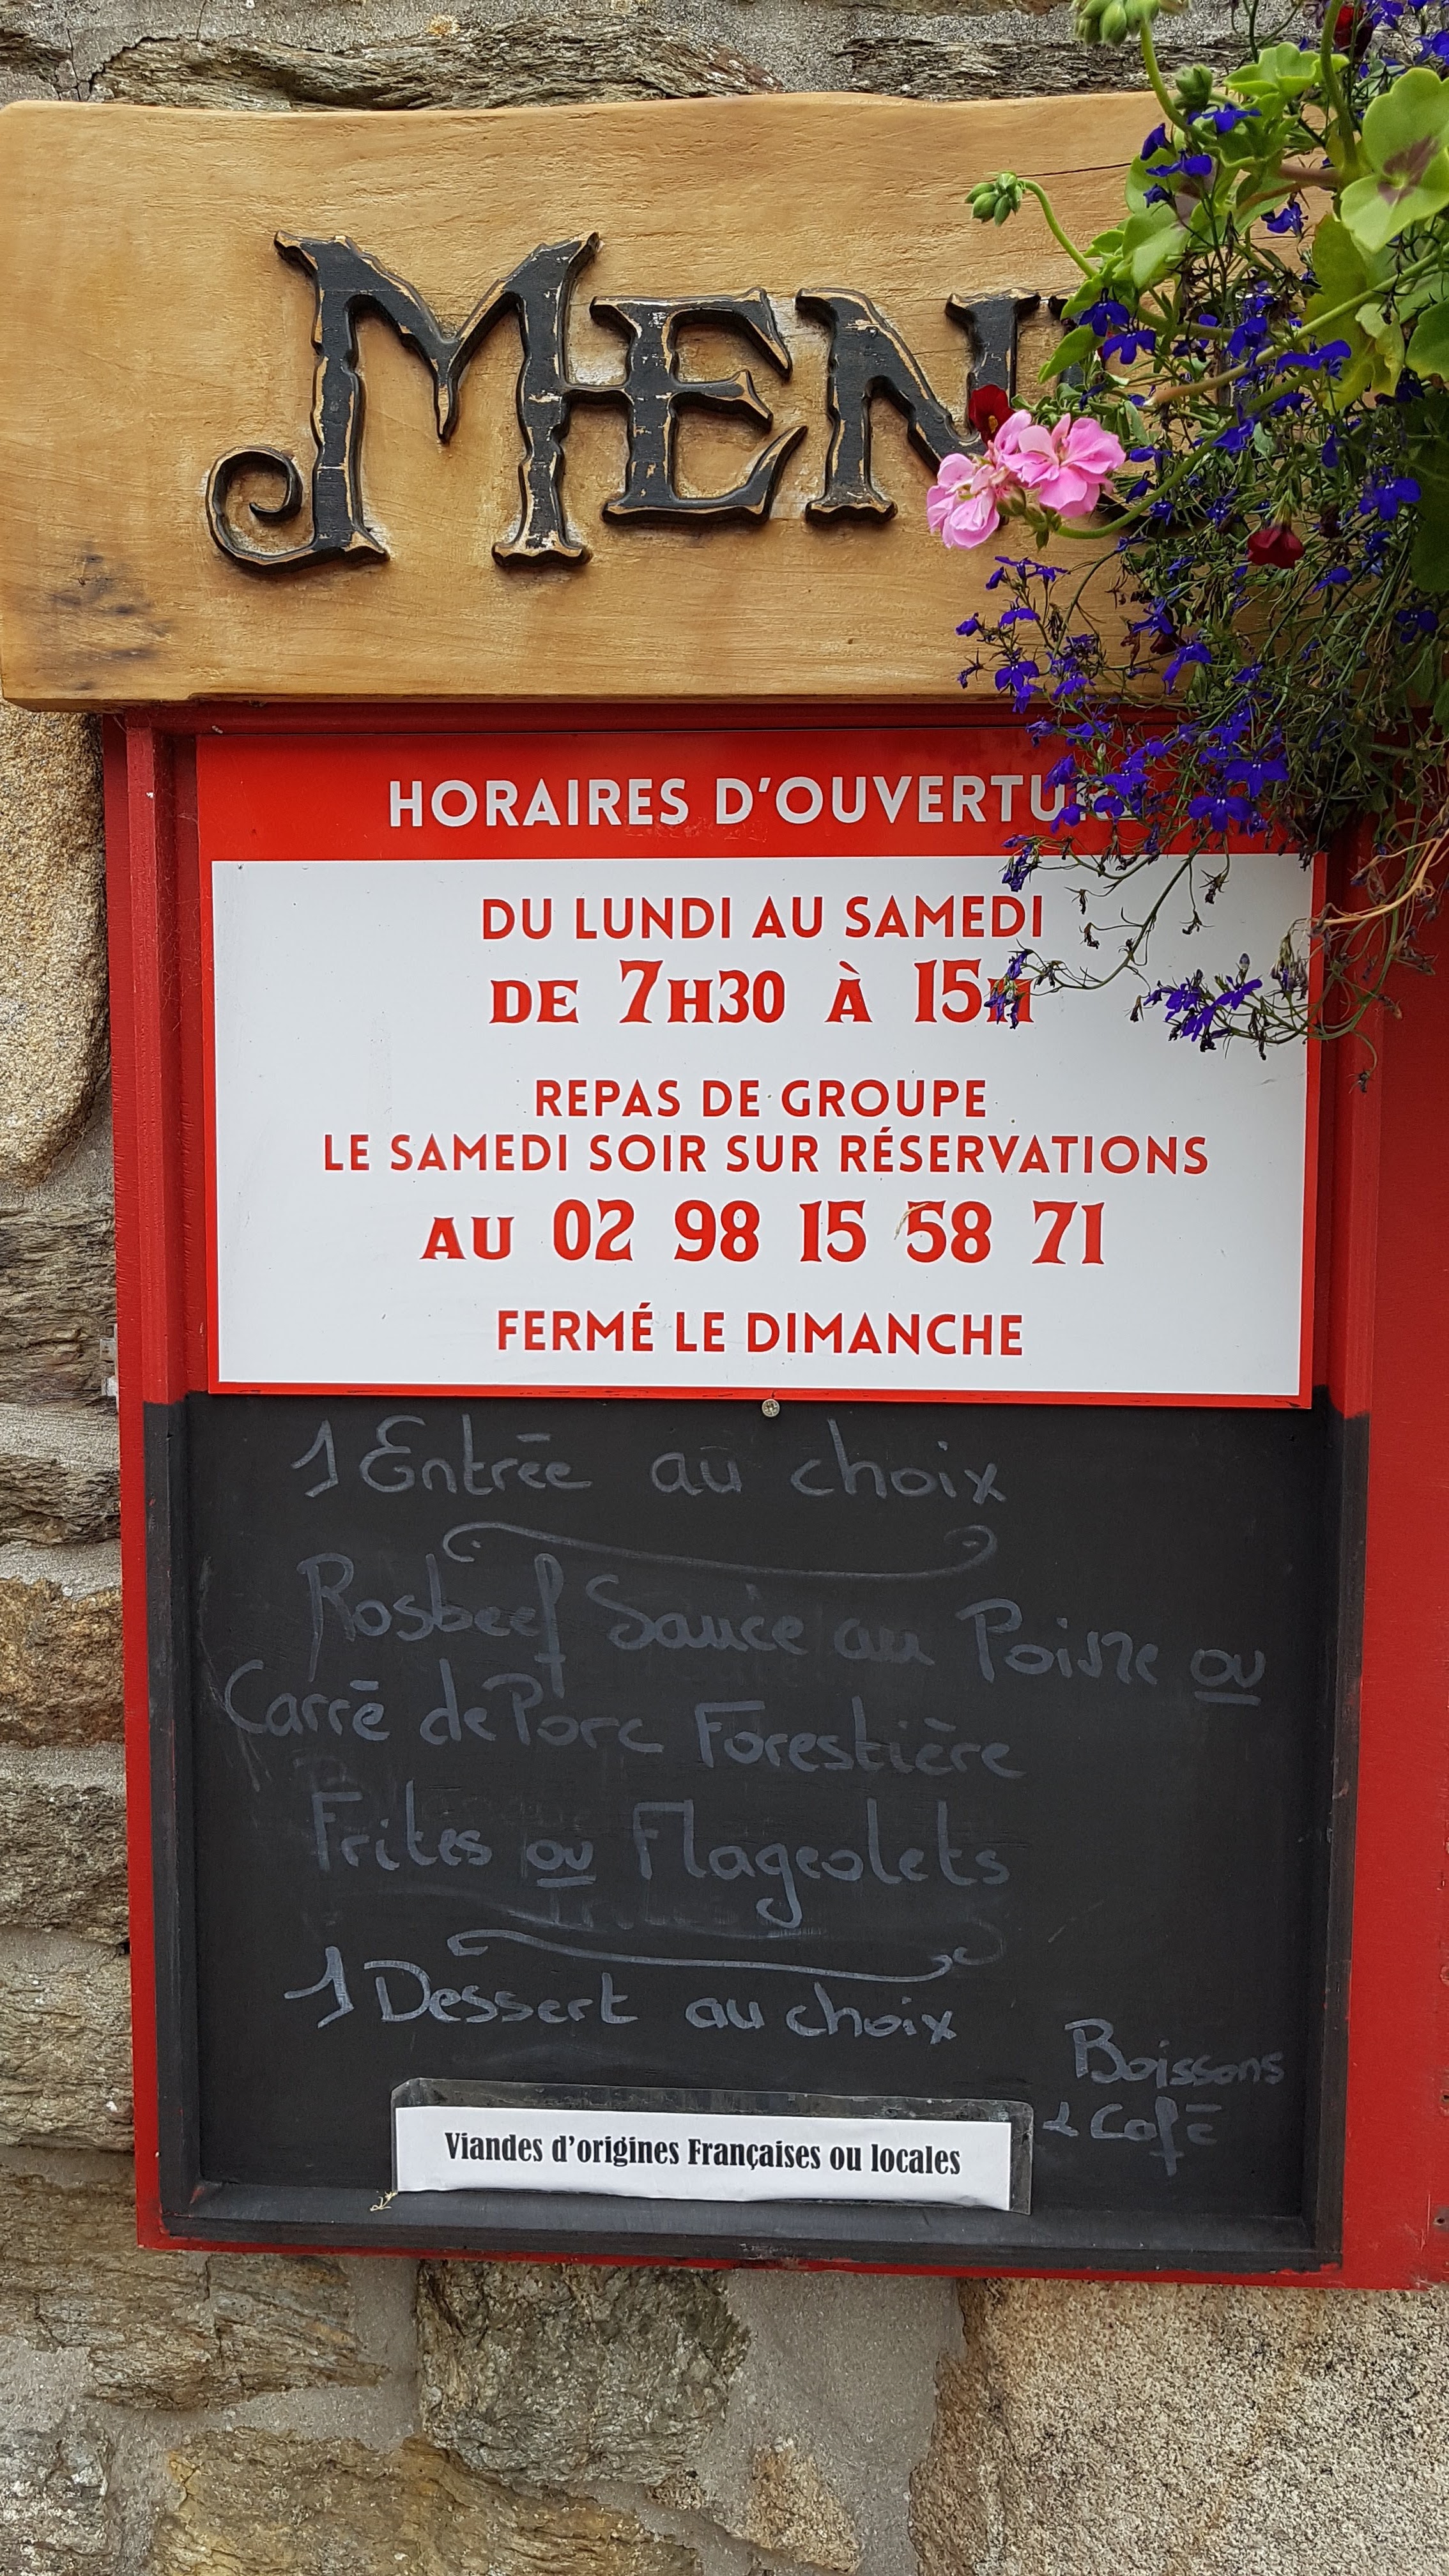 MEN
HORAIRES D'OUVERTU
DU LUNDI AU SAMEDI
DE 7H30 À 15H
REPAS DE GROUPE
LE SAMEDI SOIR SUR RÉSERVATIONS
AU 02 98 15 58 71
FERMÉ LE DIMANCHE
1 Entrée au choix
Rosbeef Sauce au Poivre ou
Carré de Porc Forestière
Frites ou Flageolets
1 Dessert au choix
Boissons
& Café
Viandes d'origines Françaises ou locales